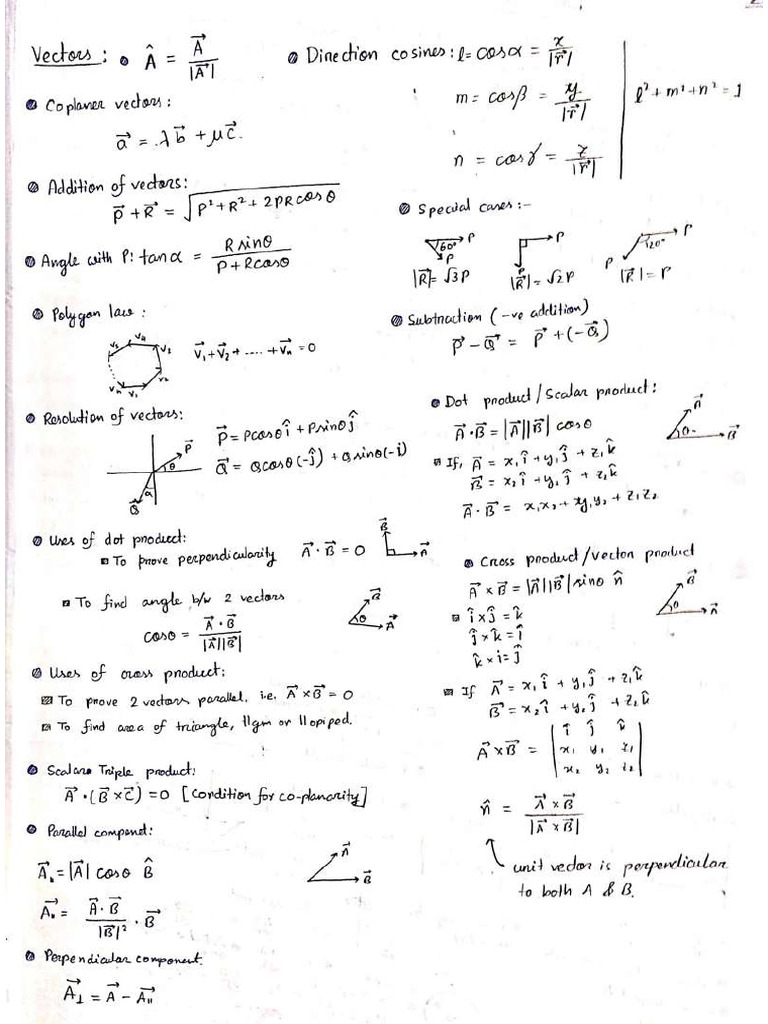 Vectors : • Â = A⃗ / |A⃗|
• Coplaner vectors :
a⃗ = λb⃗ + μc⃗.
• Addition of vectors:
P⃗ + R⃗ = √(P² + R² + 2PR cosθ)
• Angle with P: tanα = R sinθ / (P + R cosθ)
• Polygon law :
V₁ V₂ V₃ V₄ V₅ Vₙ
V⃗₁ + V⃗₂ + .... + V⃗ₙ = 0
• Resolution of vectors:
P⃗ θ α Q⃗
P⃗ = Pcosθ î + Psinθ ĵ
Q⃗ = Qcosθ(-ĵ) + Qsinθ(-i)
• Uses of dot product:
To prove perpendicularity A⃗ · B⃗ = 0
B⃗ A⃗
To find angle b/w 2 vectors
cosθ = A⃗ · B⃗ / |A⃗||B⃗|
B⃗ θ A⃗
• Uses of cross product:
To prove 2 vectors parallel, i.e. A⃗ × B⃗ = 0
To find area of triangle, llgm or llopiped.
• Scalar Triple product:
A⃗ · (B⃗ × C⃗) = 0 [Condition for co-planarity]
• Parallel compond:
A⃗ₗₗ = |A⃗| cosθ B̂
A⃗ₗₗ = A⃗ · B⃗ / |B⃗|² . B⃗
A⃗ B⃗
• Perpendicular component.
A⃗⊥ = A⃗ - A⃗ₗₗ
• Direction cosines : l = cosα = x / |r⃗|
m = cosβ = y / |r⃗|
n = cosγ = z / |r⃗|
l² + m² + n² = 1
• Special cases :-
60° P P
|R⃗| = √3P
P P
|R⃗| = √2P
P 120° P
|R⃗| = P
• Subtraction (-ve addition)
P⃗ - Q⃗ = P⃗ + (-Q⃗)
• Dot product / Scalar product :
A⃗ · B⃗ = |A⃗||B⃗| cosθ
A⃗ θ B⃗
If, A⃗ = x₁î + y₁ĵ + z₁k̂
B⃗ = x₂î + y₂ĵ + z₂k̂
A⃗ · B⃗ = x₁x₂ + y₁y₂ + z₁z₂
• Cross product / vector product
A⃗ × B⃗ = |A⃗||B⃗| sinθ n̂
B⃗ θ A⃗
î × ĵ = k̂
ĵ × k̂ = î
k̂ × i = ĵ
If A⃗ = x₁î + y₁ĵ + z₁k̂
B⃗ = x₂î + y₂ĵ + z₂k̂
A⃗ × B⃗ = | î ĵ k̂
x₁ y₁ z₁
x₂ y₂ z₂ |
n̂ = A⃗ × B⃗ / |A⃗ × B⃗|
unit vector is perpendicular
to both A & B.